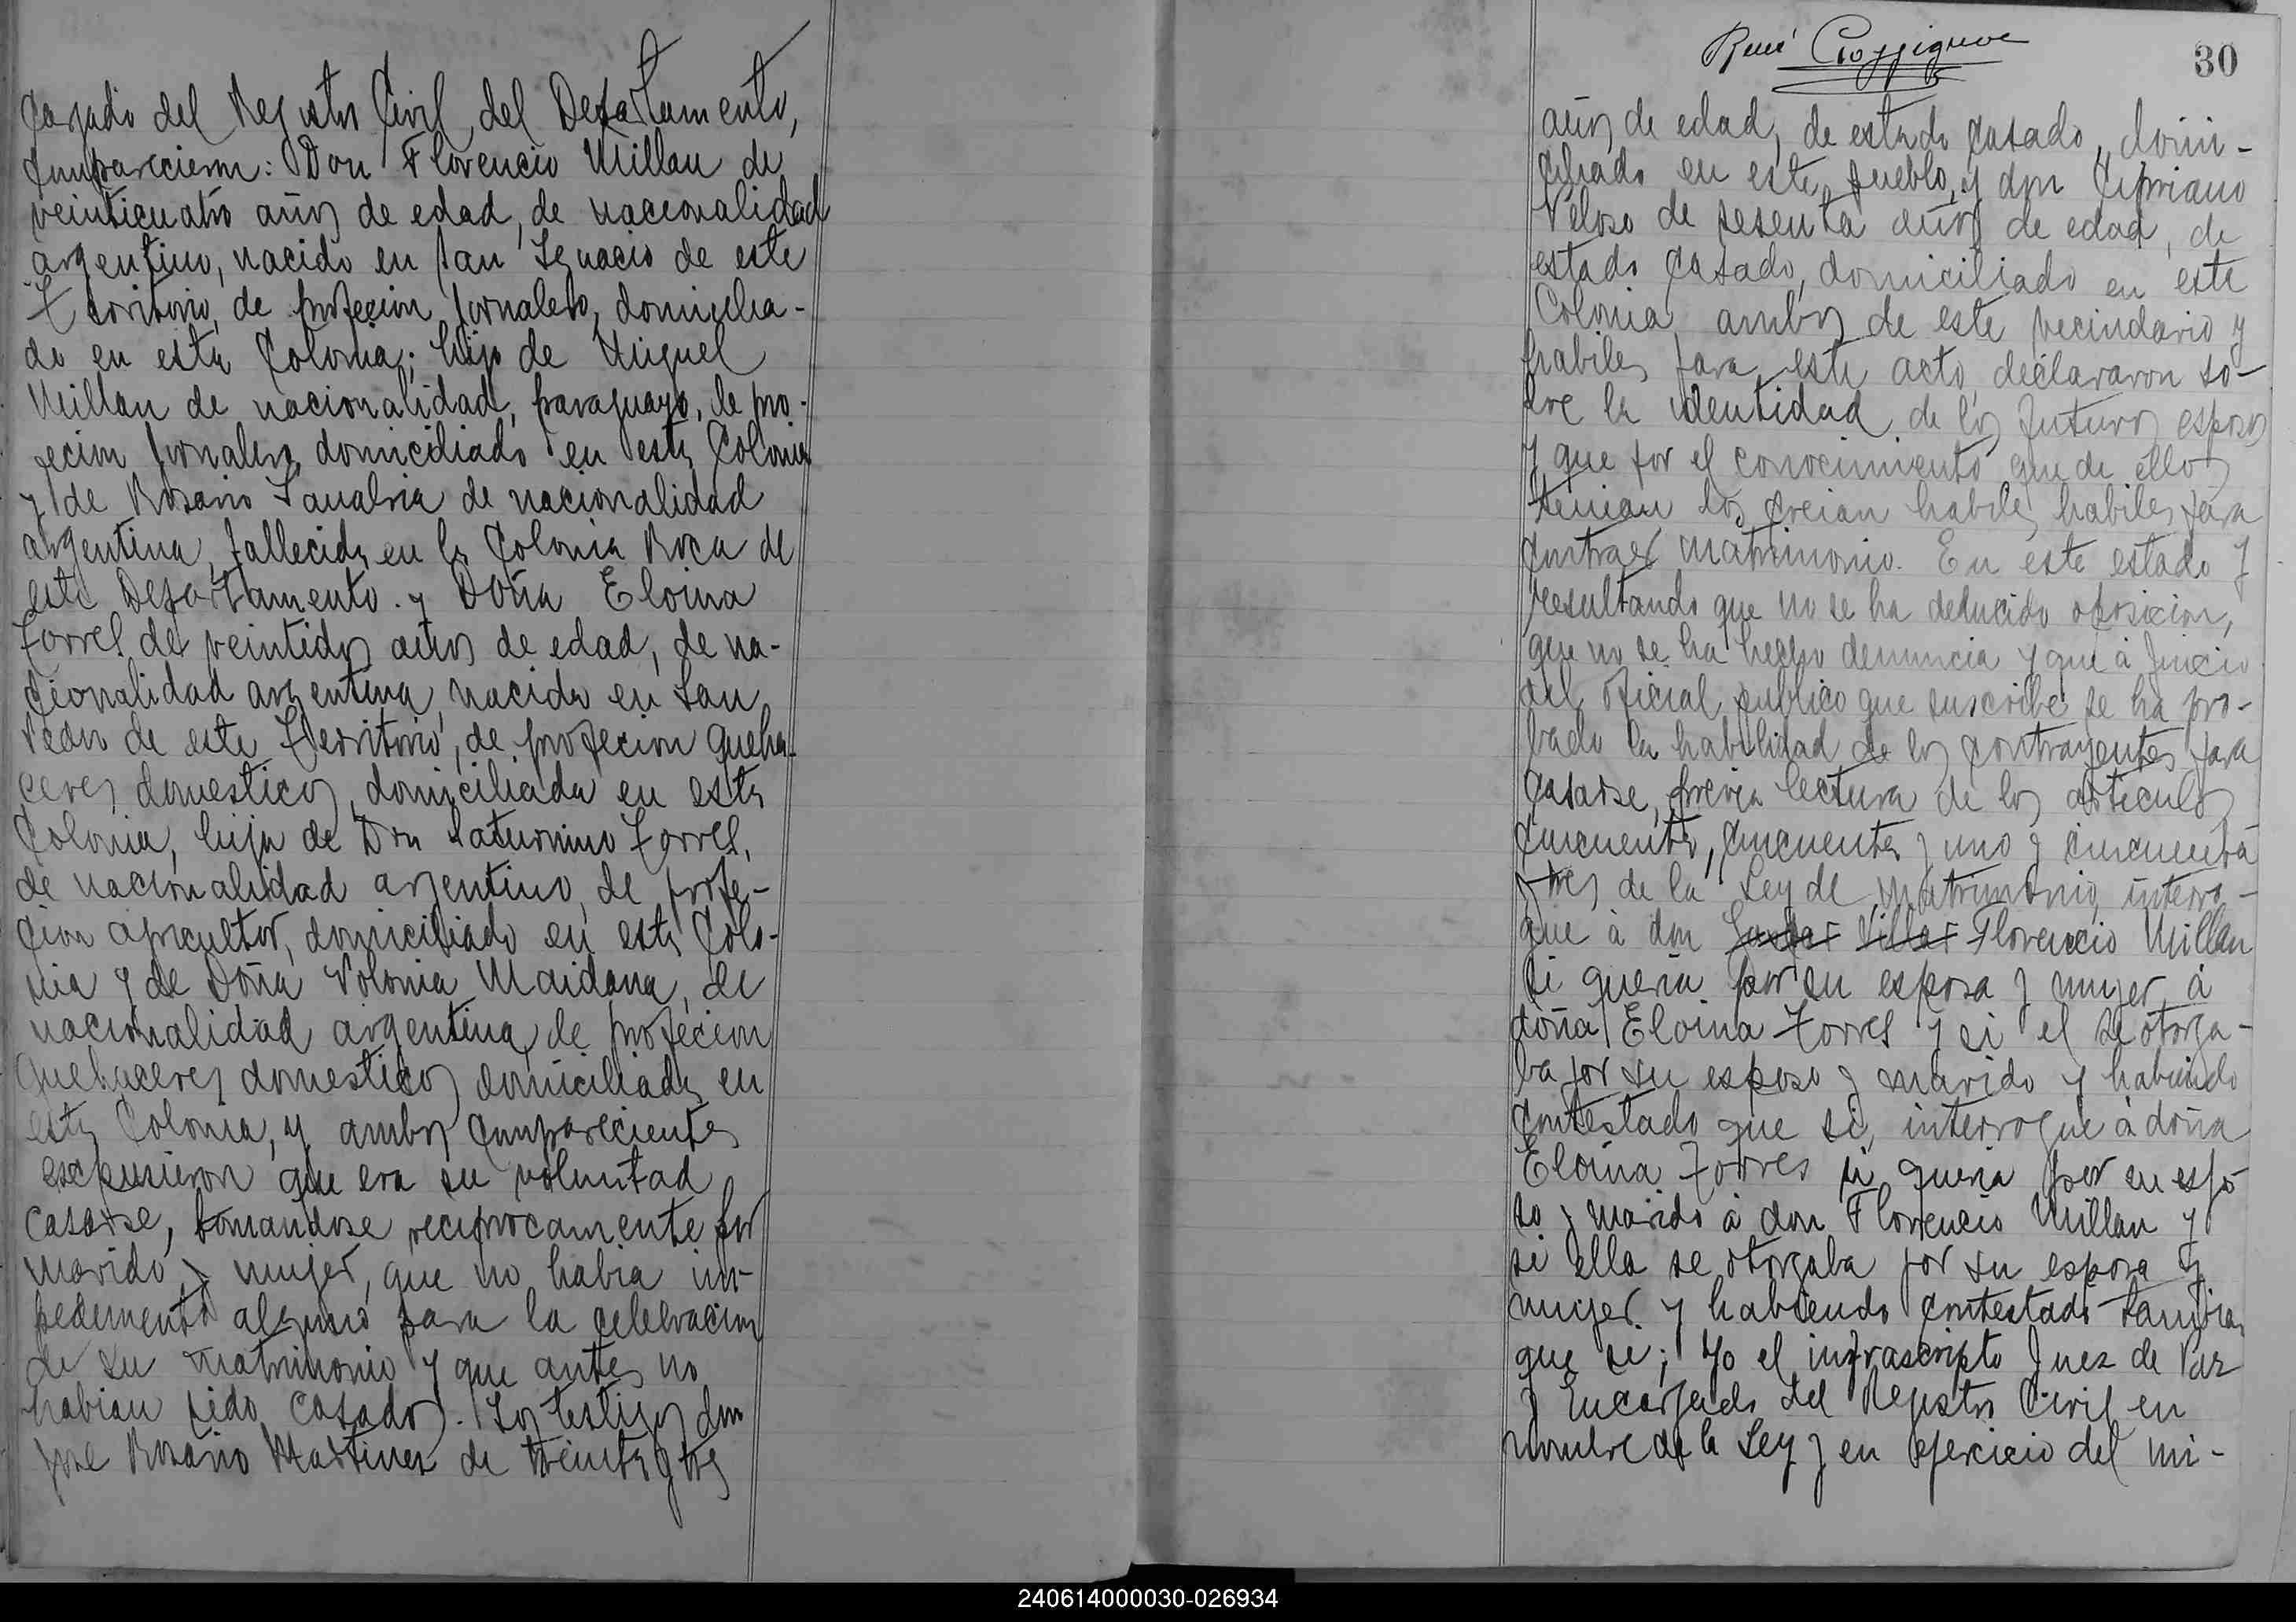 cargado del Registro Civil del Departamento,
comparecieron: Don Florencio Millan de
veinticuatro años de edad, de nacionalidad
argentino, nacido en San Ignacio de este
Territorio, de profecion jornalero, domicilia-
do en esta Colonia; hijo de Miguel
Millan de nacionalidad, paraguayo, de pro-
fecion jornalero, domiciliado en esta Colonia
y de Rosario Sanabria de nacionalidad
argentina, fallecida en la Colonia Roca de
este Departamento. y Doña Eloina
Torres de veintidos años de edad, de na-
cionalidad argentina, nacida en San
Pedro de este Territorio, de profecion queha-
ceres domesticos, domiciliada en esta
Colonia, hija de Don Saturnino Torres,
de nacionalidad argentino, de profe-
cion agricultor, domiciliado en esta Colo-
nia y de Doña Polonia Maidana, de
nacionalidad argentina, de profecion
quehaceres domesticos domiciliada en
esta Colonia, y ambos comparecientes
expusieron que era su voluntad
casarse, tomandose reciprocamente por
marido y mujer, que no habia im-
pedimento alguno para la celebracion
de su matrimonio y que antes no
habian sido casados. Los testigos don
José Rosario Martinez de treinta y tres
René
30
años de edad, de estado casado, domi-
ciliado en este pueblo, y don Cipriano
Veloso de sesenta años de edad, de
estado casado, domiciliado en este
Colonia ambos de este vecindario y
habiles para este acto, declararon so-
bre la identidad de los futuros esposos
y que por el conocimiento que de ellos
tenian los creian habiles habiles para
contraer matrimonio. En este estado y
resultando que no se ha deducido oposicion,
que no se ha hecho denuncia y que á juicio
del oficial publico que suscribe se ha pro-
bado la habilidad de los contrayentes para
casarse, previa lectura de los articulos
cincuenta, cincuenta y uno y cincuenta
y tres de la Ley de Matrimonio, interro-
gue á don Florencio Millan
si queria por su esposa y mujer á
doña Eloina Torres y si el se otorga-
ba por su esposo y marido y habiendo
contestado que si, interrogue á doña
Eloina Torres si queria por su espo
so y marido á don Florencio Millan y
si ella se otorgaba por su esposa y
mujer y habiendo contestado tambien
que si; Yo el infrascripto Juez de Paz
y Encargado del Registro Civil en
nombre de la Ley y en ejercicio del mi-
240614000030-026934